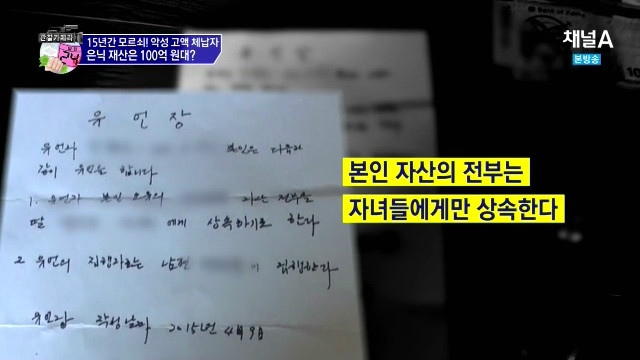 15년간 모르쇠! 악성 고액 체납자
은닉 재산은 100억 원대?
채널A
본방송
유언장
유언자 본인은 다음과
같이 유언을 합니다
1. 유언자 본인 소유의 자산 전부를
딸 에게 상속하기로 한다
2 유언의 집행자는 남편 이 집행한다
유언장 작성날짜 2015년 4월 9일
본인 자산의 전부는
자녀들에게만 상속한다